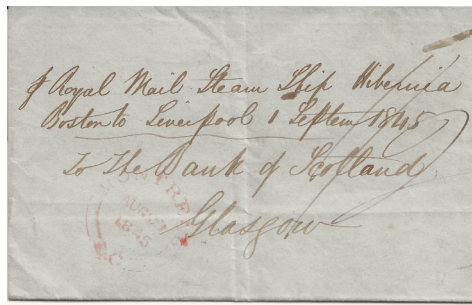 p Royal Mail Steam Ship Hibernia
Boston to Liverpool 1 Septem 1845
To The Bank of Scotland
Glasgow
AUG
1845